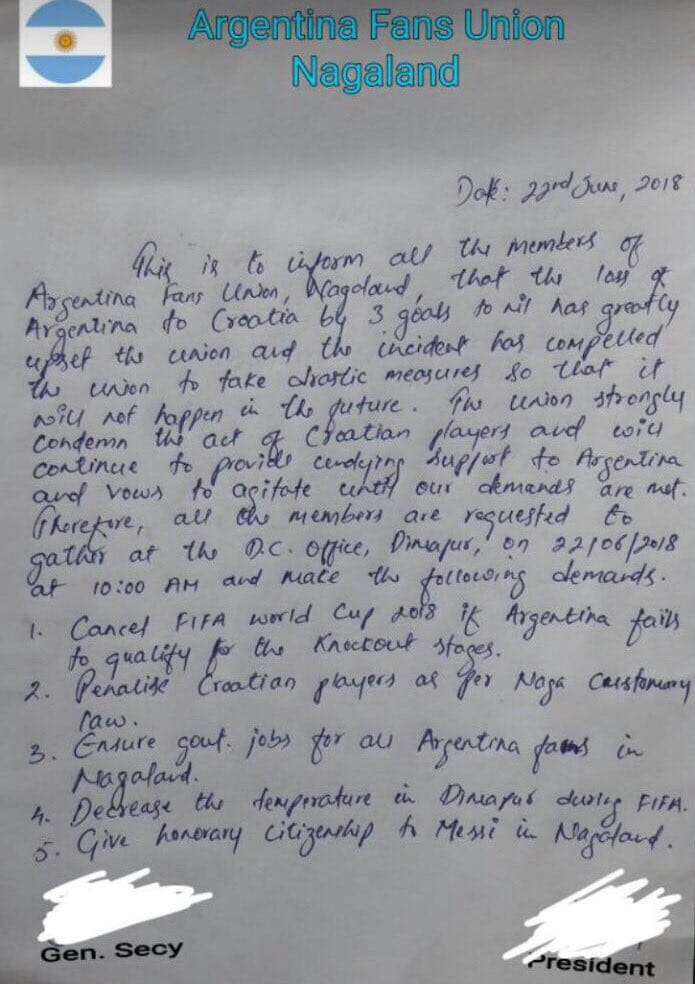 Argentina Fans Union
Nagaland
Date: 22nd June, 2018
This is to inform all the members of
Argentina Fans Union, Nagaland, that the loss of
Argentina to Croatia by 3 goals to nil has greatly
upset the union and the incident has compelled
the union to take drastic measures so that it
will not happen in the future. The union strongly
condemn the act of Croatian players and will
continue to provide undying support to Argentina
and vows to agitate until our demands are met.
Therefore, all the members are requested to
gather at the D.C. Office, Dimapur, on 22/06/2018
at 10:00 AM and make the following demands.
1. Cancel FIFA World Cup 2018 if Argentina fails
to qualify for the Knockout stages.
2. Penalise Croatian players as per Naga Customary
law.
3. Ensure govt. jobs for all Argentina fans in
Nagaland.
4. Decrease the temperature in Dimapur during FIFA.
5. Give honorary citizenship to Messi in Nagaland.
Gen. Secy
President